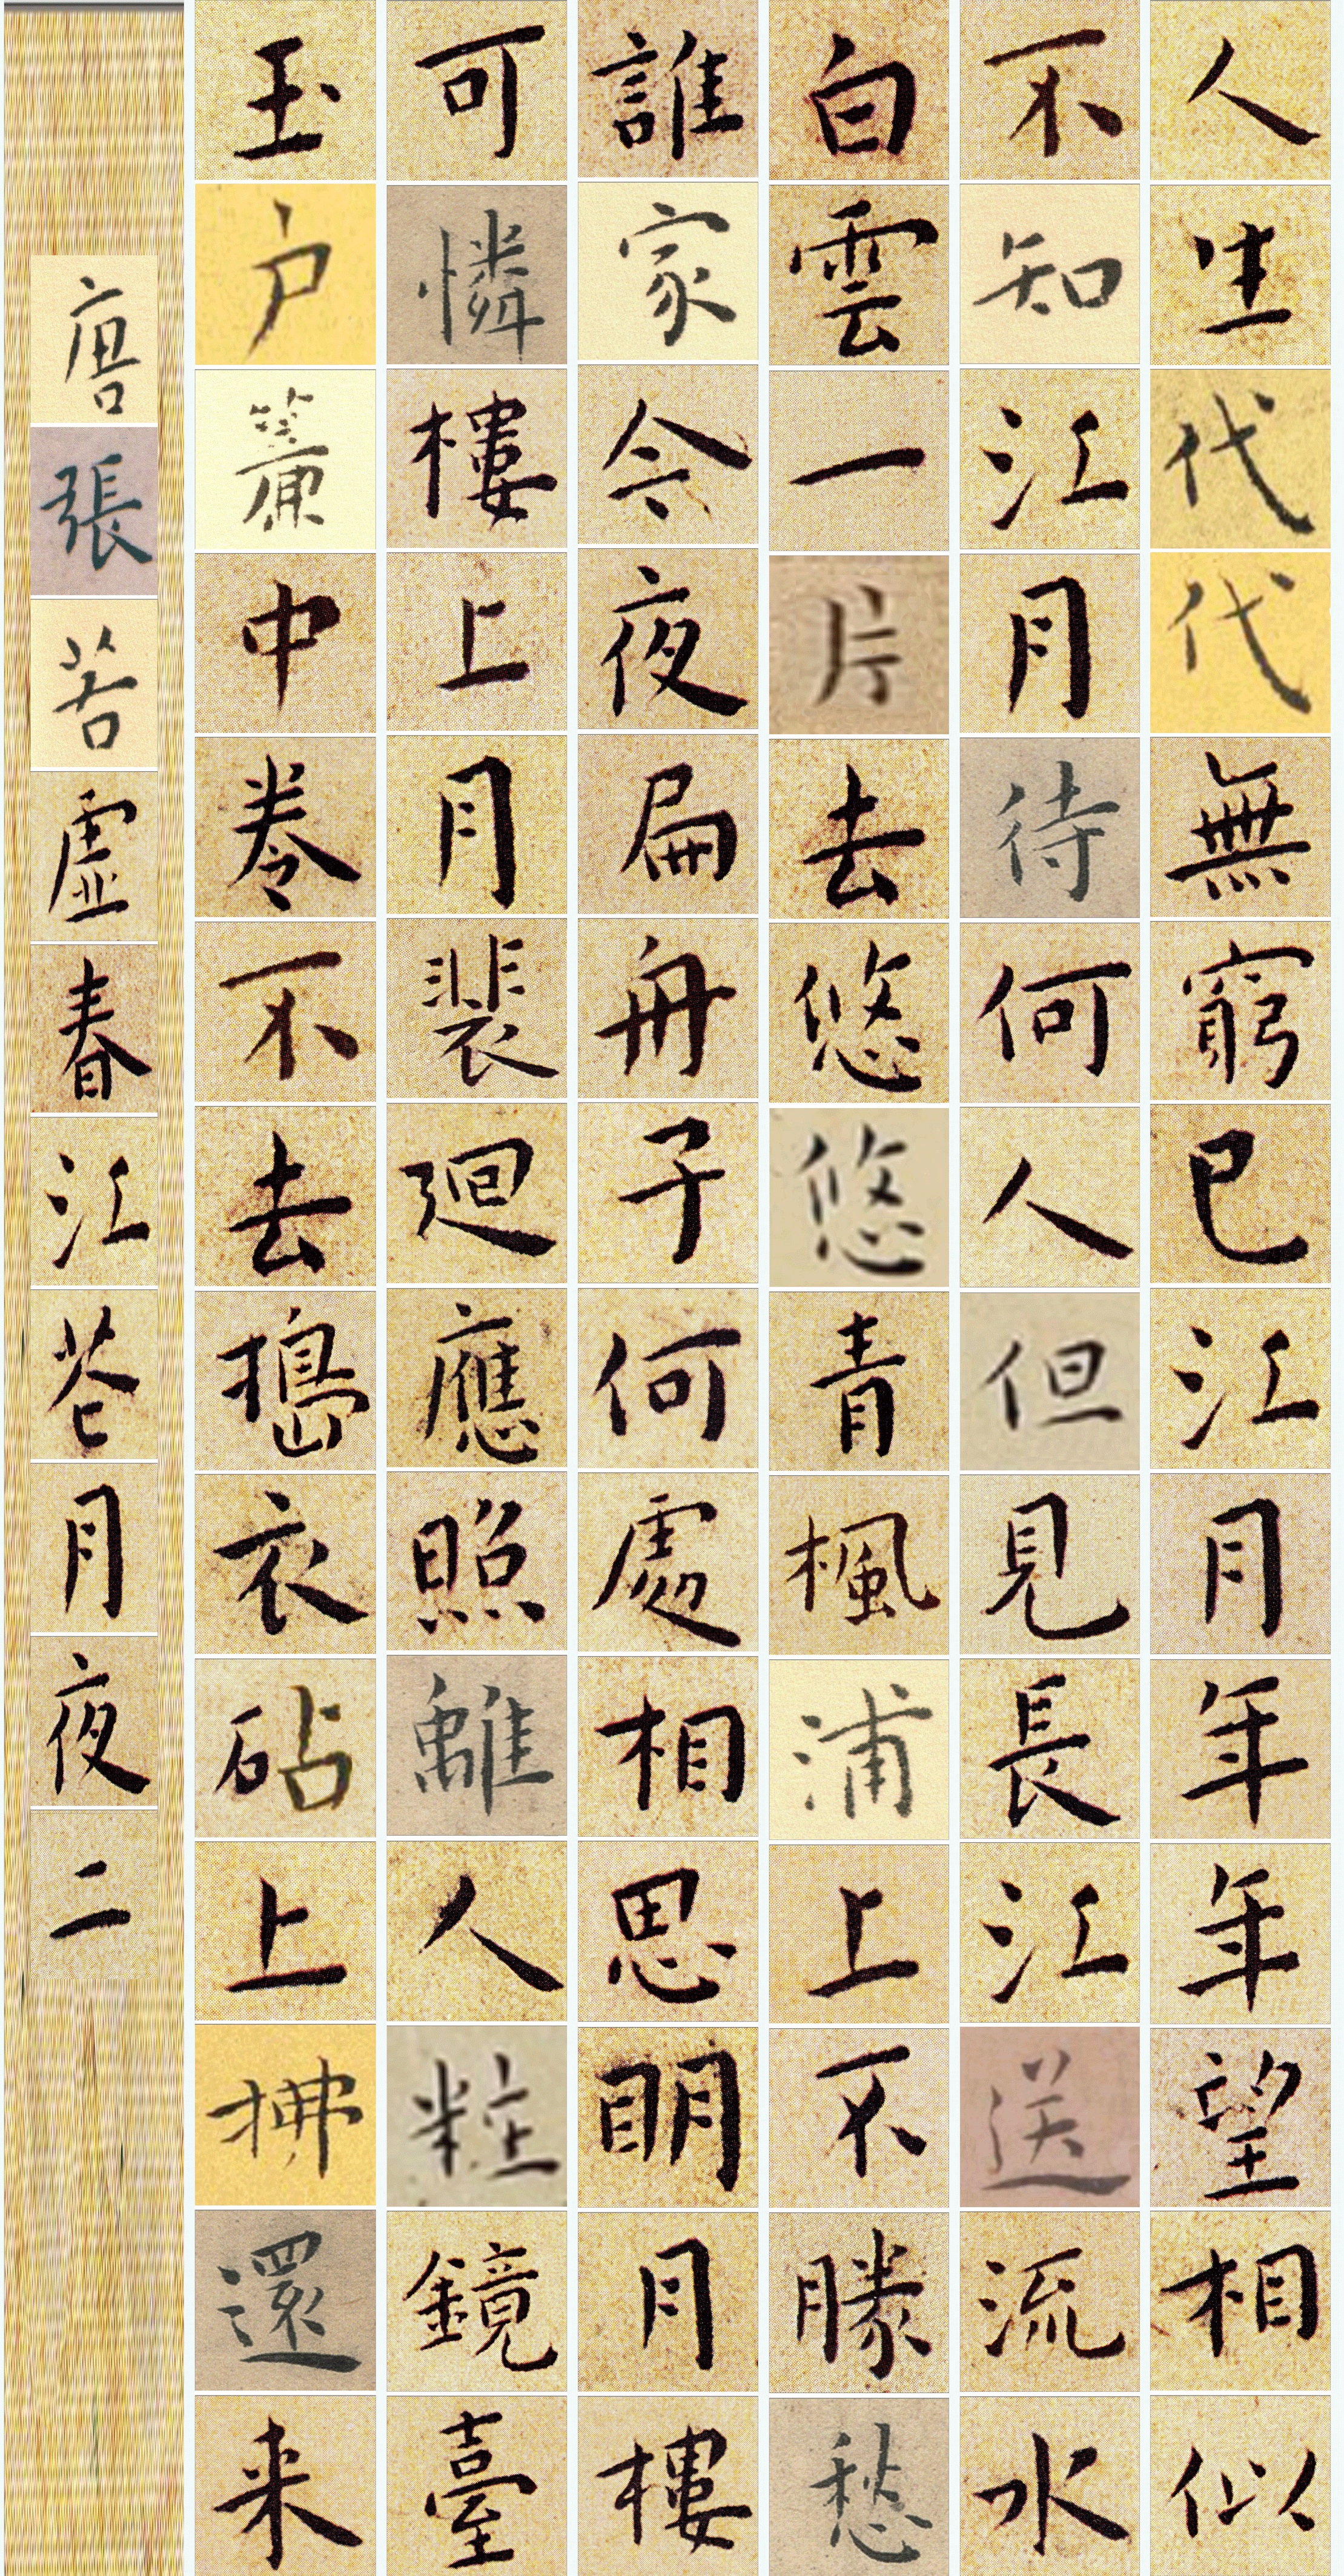 人生代代無窮已江月年年望相似
不知江月待何人但見長江送流水
白雲一片去悠悠青楓浦上不勝愁
誰家今夜扁舟子何處相思明月樓
可憐樓上月裴廻應照離人粧鏡臺
玉户簾中卷不去搗衣砧上拂還来
唐張若虛春江花月夜二